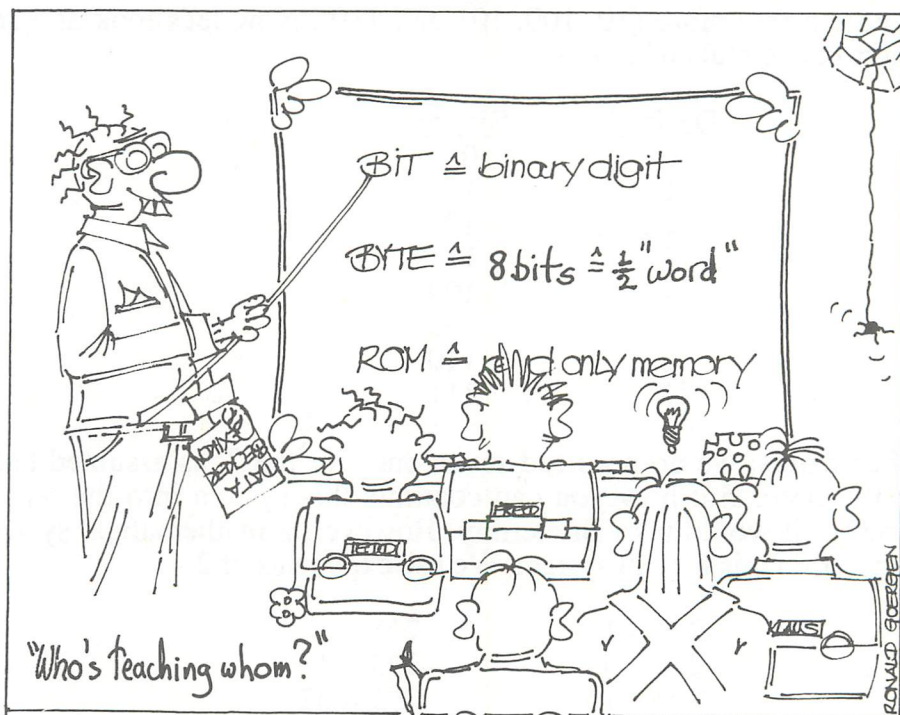 BIT ≙ binary digit
BYTE ≙ 8 bits ≙ ½ "word"
ROM ≙ read only memory
DATA
FREED
KLAUS
"Who's teaching whom?"
RONALD GOERGEN